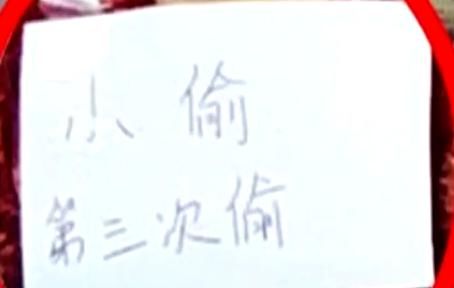 小偷
第三次偷